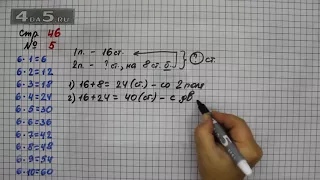 4DA5.RU
Стр 46
№ 5
6·1=6
6·2=12
6·3=18
6·4=24
6·5=30
6·6=36
6·7=42
6·8=48
6·9=54
6·10=60
1п. – 16 ст.
2п. – ? ст., на 8 ст. б.
? ст.
1) 16+8=24(ст) – со 2 поля
2) 16+24=40(ст) – с дв